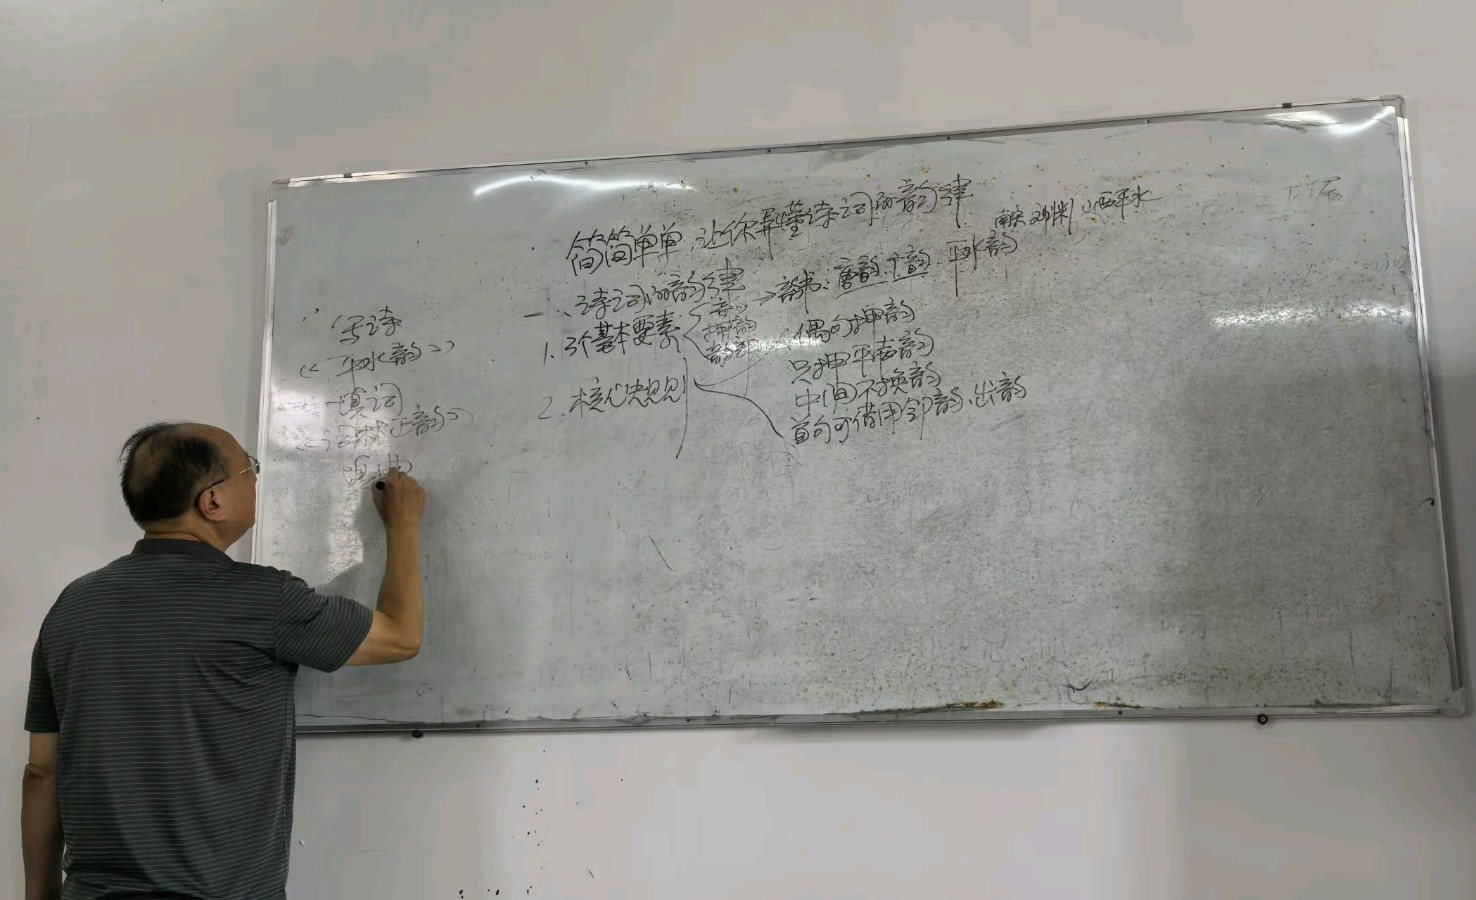 简简单单,让你弄懂诗词的韵律
南宋 刘渊 山西平水
一、诗词的韵律
→韵书:唐韵、广韵、平水韵
1.3个基本要素
押韵
2.核心规则
偶句押韵
只押平声韵
中间不换韵
首句可借用邻韵、出韵
写诗
《平水韵》
填词
《词林正韵》